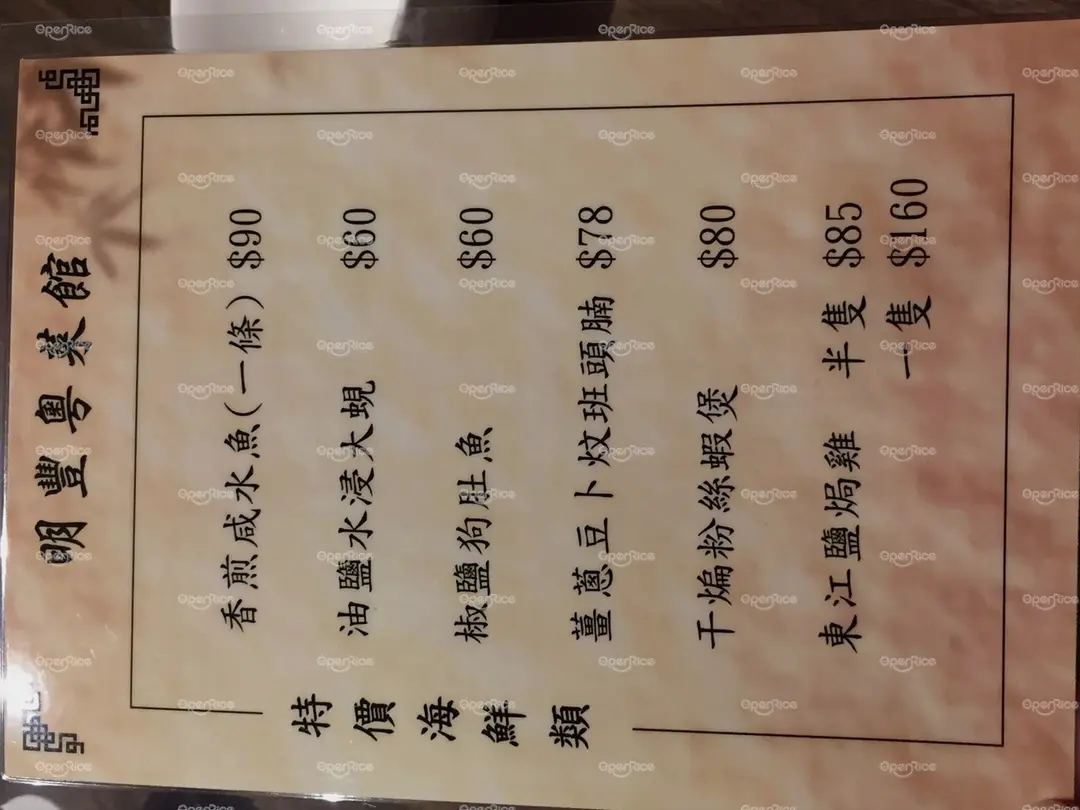 明豐粵菜館
特價海鮮類
香煎咸水魚(一條) $90
油鹽水浸大蜆 $60
椒鹽狗肚魚 $60
薑蔥豆卜炆班頭腩 $78
干煸粉絲蝦煲 $80
東江鹽焗雞 半隻 $85
一隻 $160
OpenRice